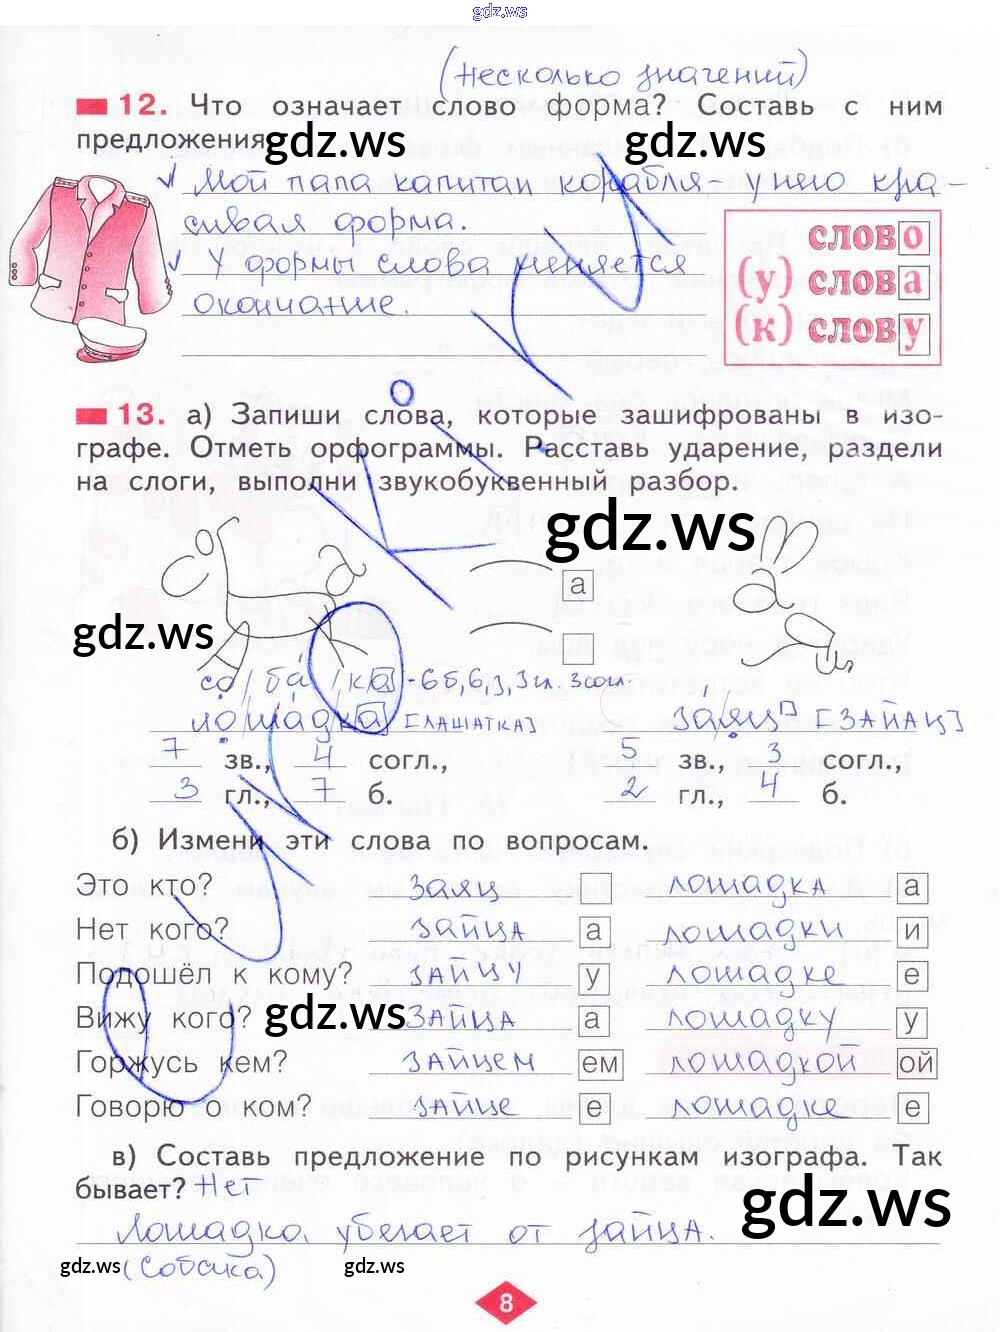 gdz.ws
(несколько значений)
12. Что означает слово форма? Составь с ним
предложения
gdz.ws gdz.ws
Мой папа капитан корабля у него кра-
сивая форма.
У формы слова меняется
окончание.
слово
(у) слова
(к) слову
13. а) Запиши слова, которые зашифрованы в изо-
графе. Отметь орфограммы. Расставь ударение, раздели
на слоги, выполни звукобуквенный разбор.
gdz.ws
а
gdz.ws
со/ба/ка - 6б, 6з, 3гл. 3сог.
лошадка [лашатка] заяц [зайац]
7 зв., 4 согл., 5 зв., 3 согл.,
3 гл., 7 б. 2 гл., 4 б.
б) Измени эти слова по вопросам.
Это кто? заяц лошадка а
Нет кого? зайца а лошадки и
Подошёл к кому? зайцу у лошадке е
Вижу кого? зайца а лошадку у
gdz.ws
Горжусь кем? зайцем ем лошадкой ой
Говорю о ком? зайце е лошадке е
в) Составь предложение по рисункам изографа. Так
бывает? Нет
gdz.ws
Лошадка убегает от зайца.
(Собака)
gdz.ws gdz.ws
8